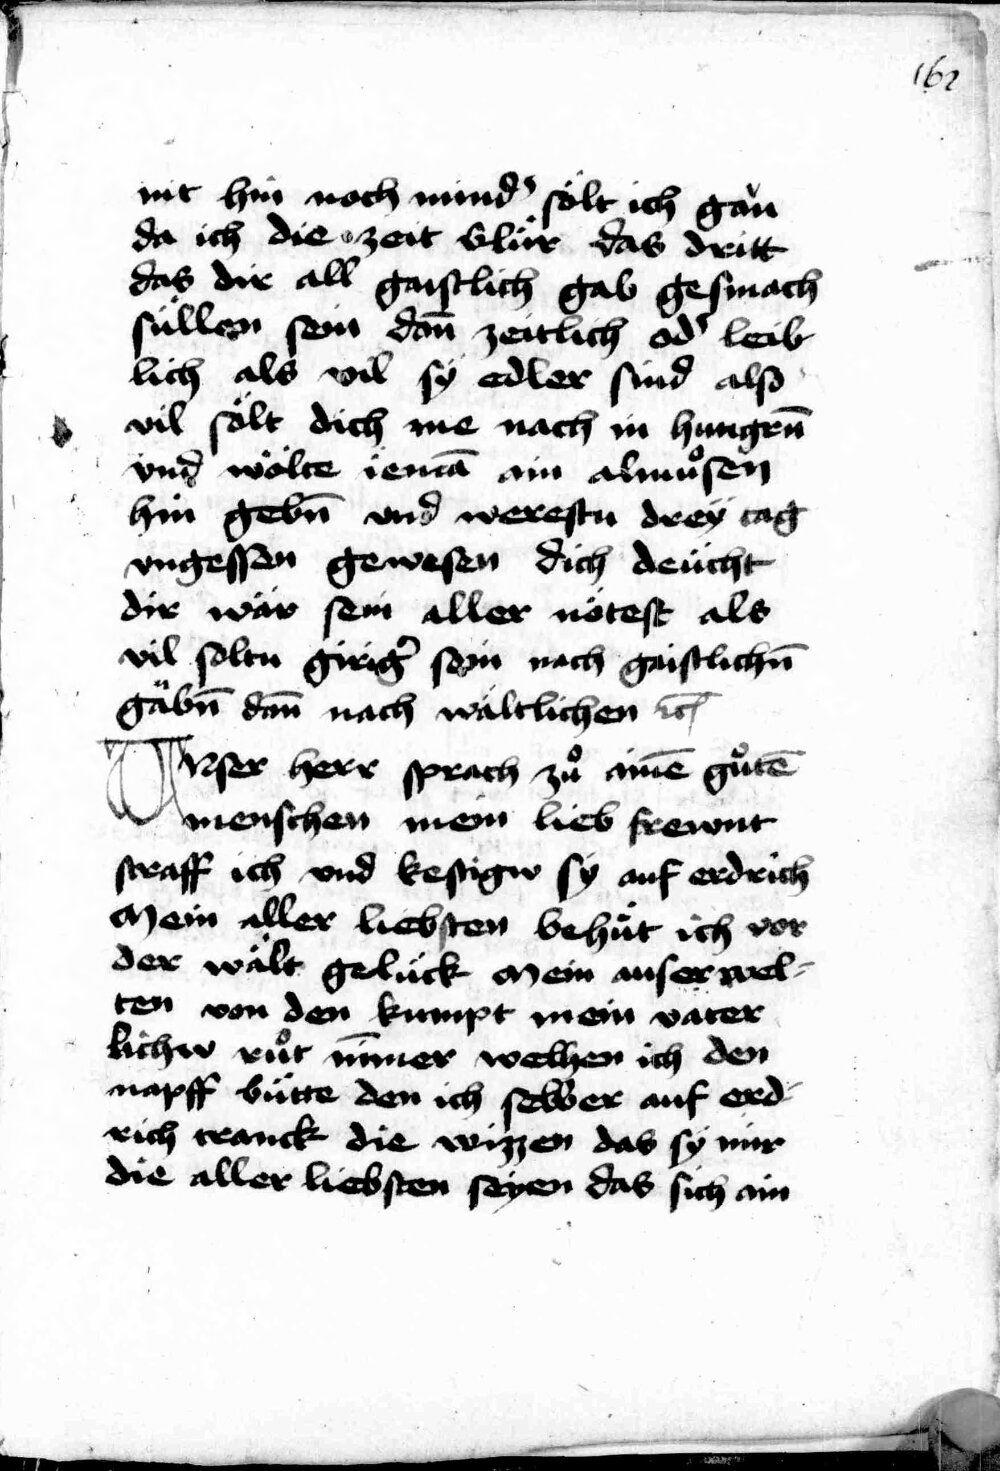 162
nit hin noch mindˀ sölt ich gän
da ich die zeit vlür das dritt
das dir all gaistlich gab gesmach
süllen sein dan̄ zeitlich odˀ leib
lich als vil sÿ edler sind also
vil sölt dich me nach in hungrn̄
vnd wölte iemā ain almuͦsen
hin gebn̄ vnd werestu dreÿ tag
vngessen gewesen dich deücht
dir wär sein aller nötest als
vil soltu girigˀ sein nach gaistlichn̄
gäbn̄ dan̄ nach wältlichen
Vnser herr sprach zuͦ aimē guͦtē
menschen mein lieb frewnt
straff ich vnd kestigw sÿ auf erdrich
Mein aller liebsten behüt ich vor
der wält gelück Mein auserwel-
ten von den kumpt mein vater
lichw ruͦt nim̄er welhen ich den
napff bütte den ich selber auf erd-
rich tranck die wizzen das sÿ mir
die aller liebsten seÿen das sich ain